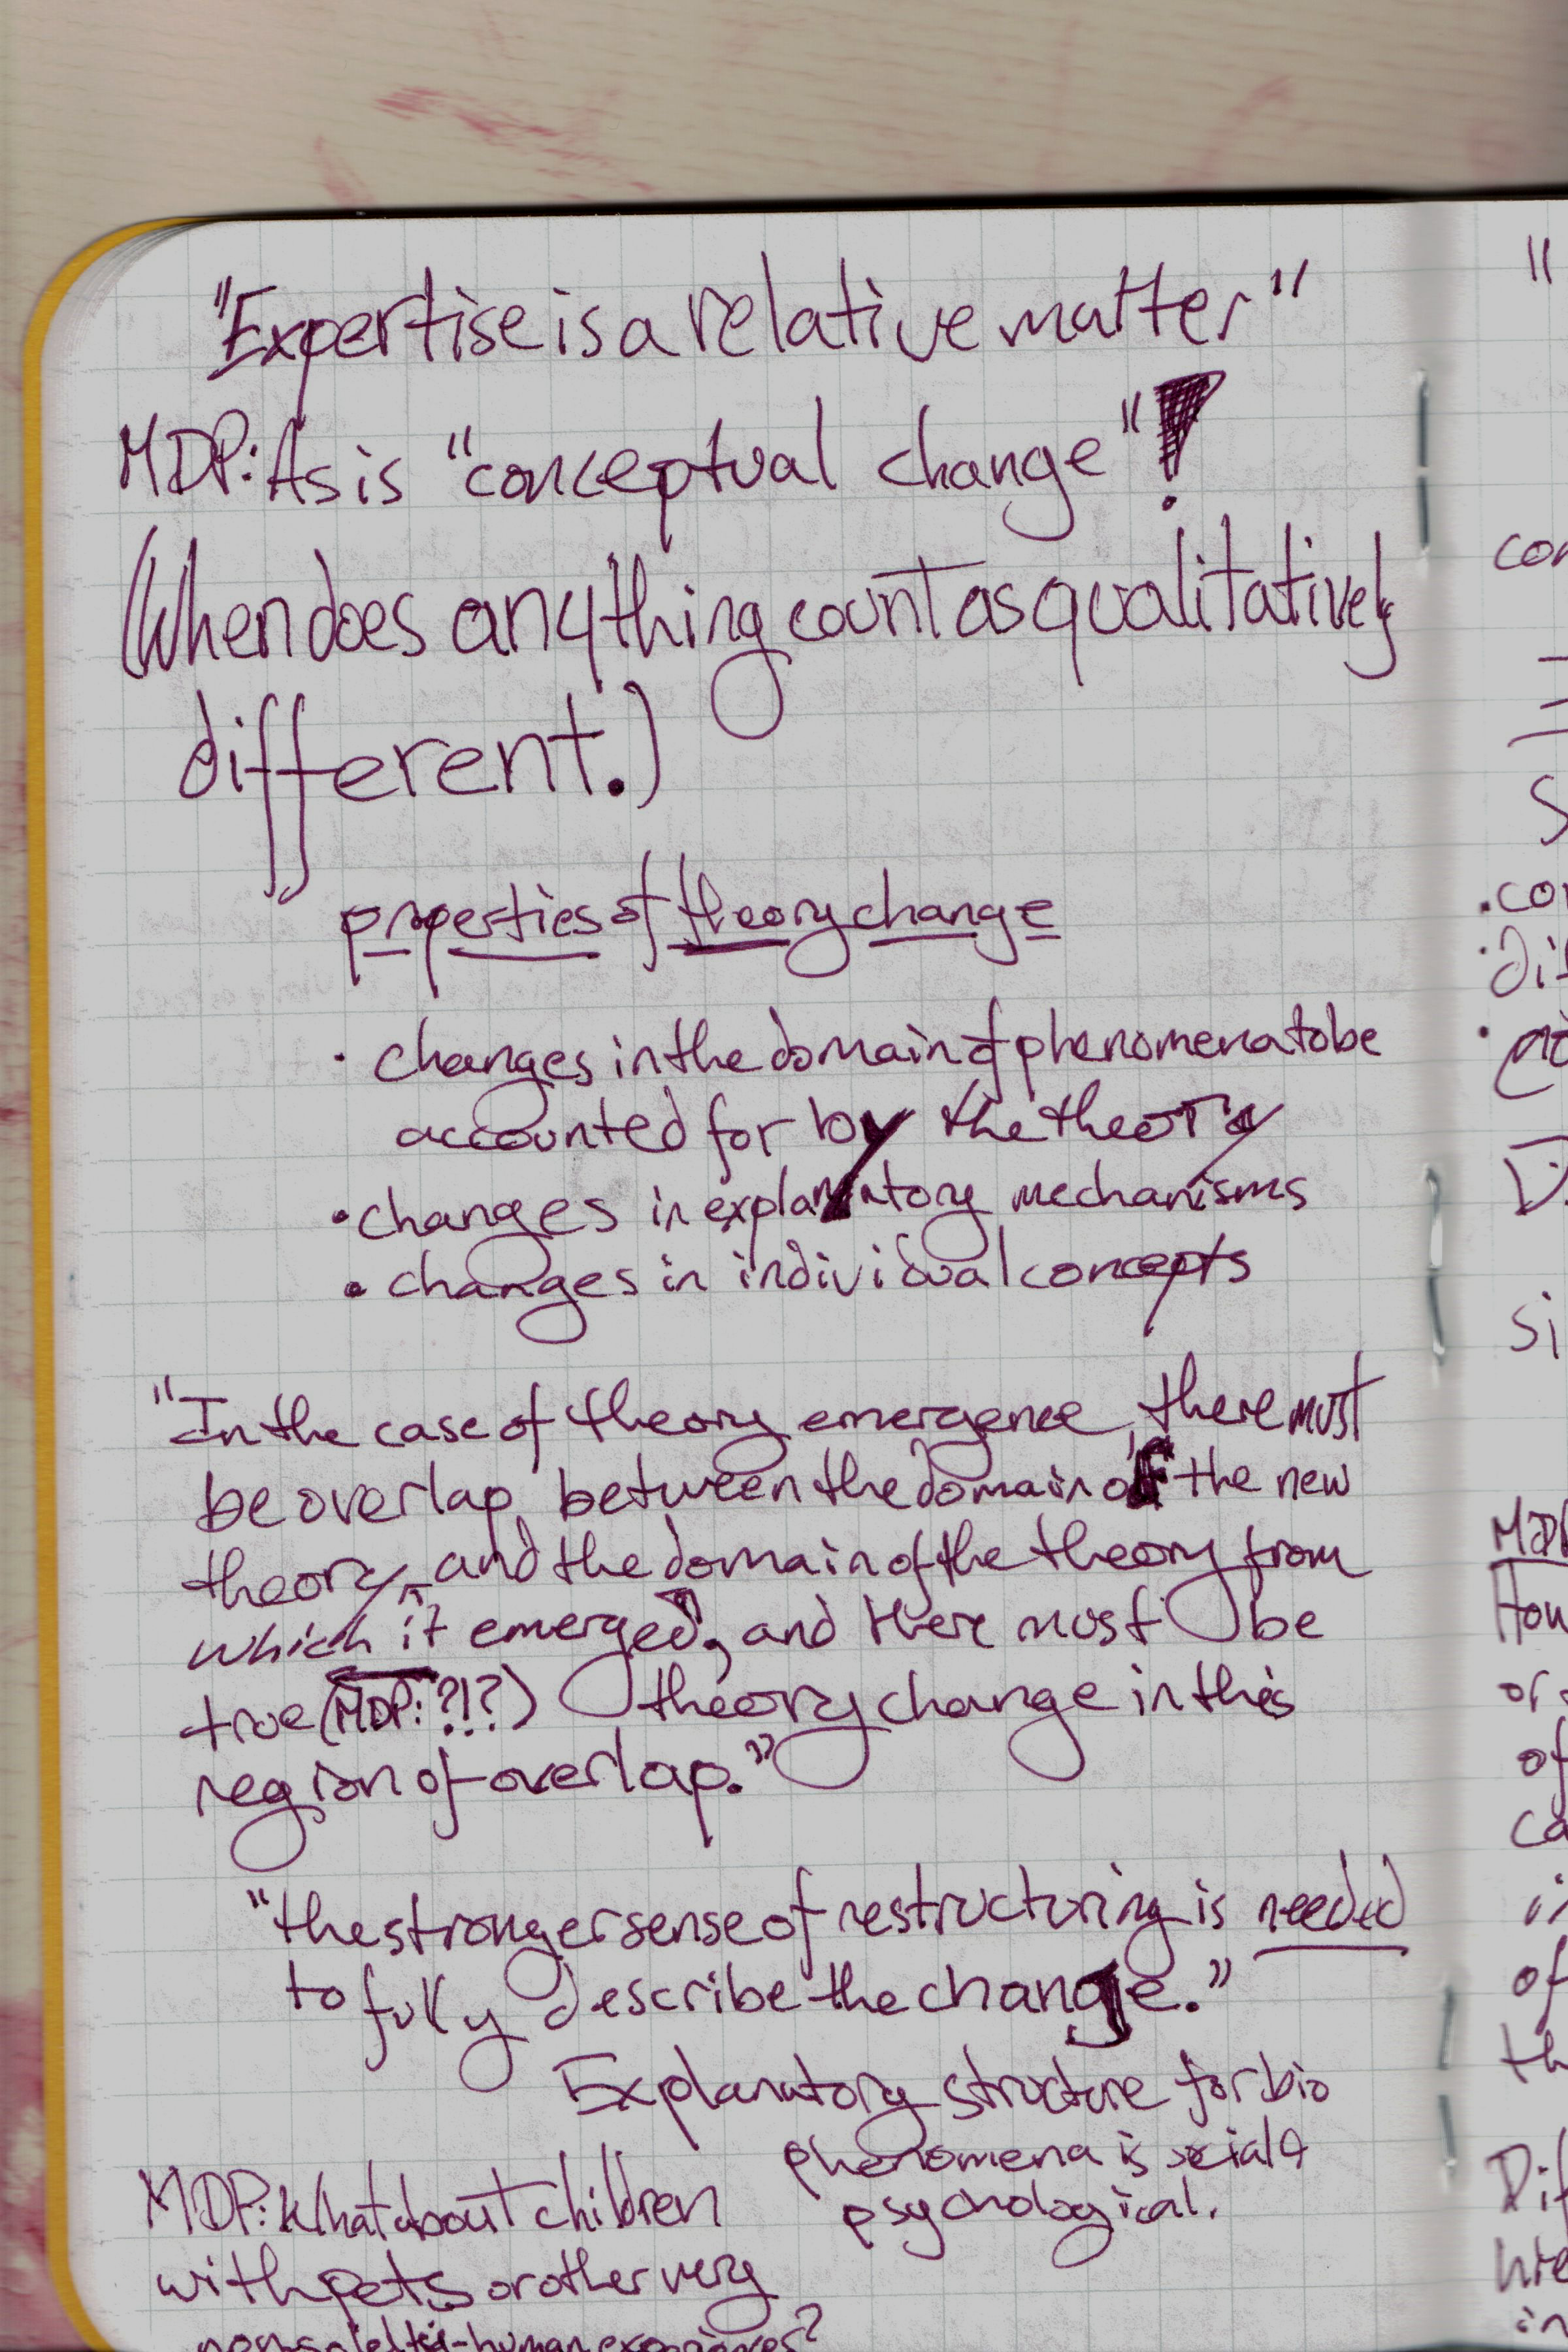 "Expertise is a relative matter"
MDP: As is "conceptual change"!
(When does anything count as qualitatively
different.)
properties of theory change
• changes in the domain of phenomena to be
accounted for by the theory
• changes in explanatory mechanisms
• changes in individual concepts
"In the case of theory emergence, there must
be overlap, between the domain of the new
theory, and the domain of the theory from
which it emerged, and there must be
true (MDP: ?!?) theory change in this
region of overlap."
"the stronger sense of restructuring is needed
to fully describe the change."
Explanatory structure for bio
phenomena is social &
psychological.
MDP: What about children
with pets or other very
-human experiences?
"
•
•
si
MDP
of
of